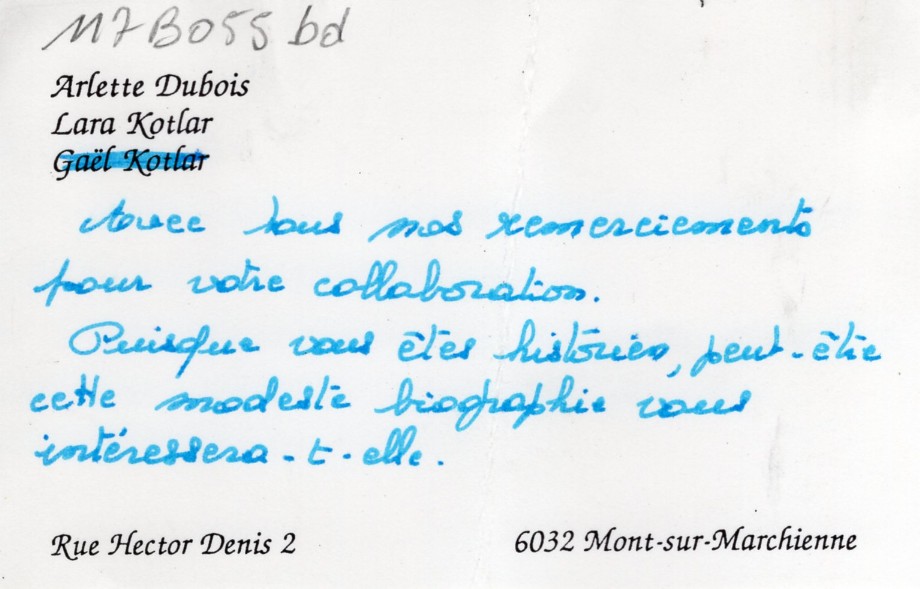 M7B055 bd
Arlette Dubois
Lara Kotlar
Gaël Kotlar
Avec tous nos remerciements
pour votre collaboration.
Puisque vous êtes historien, peut-être
cette modeste biographie vous
intéressera-t-elle.
Rue Hector Denis 2
6032 Mont-sur-Marchienne